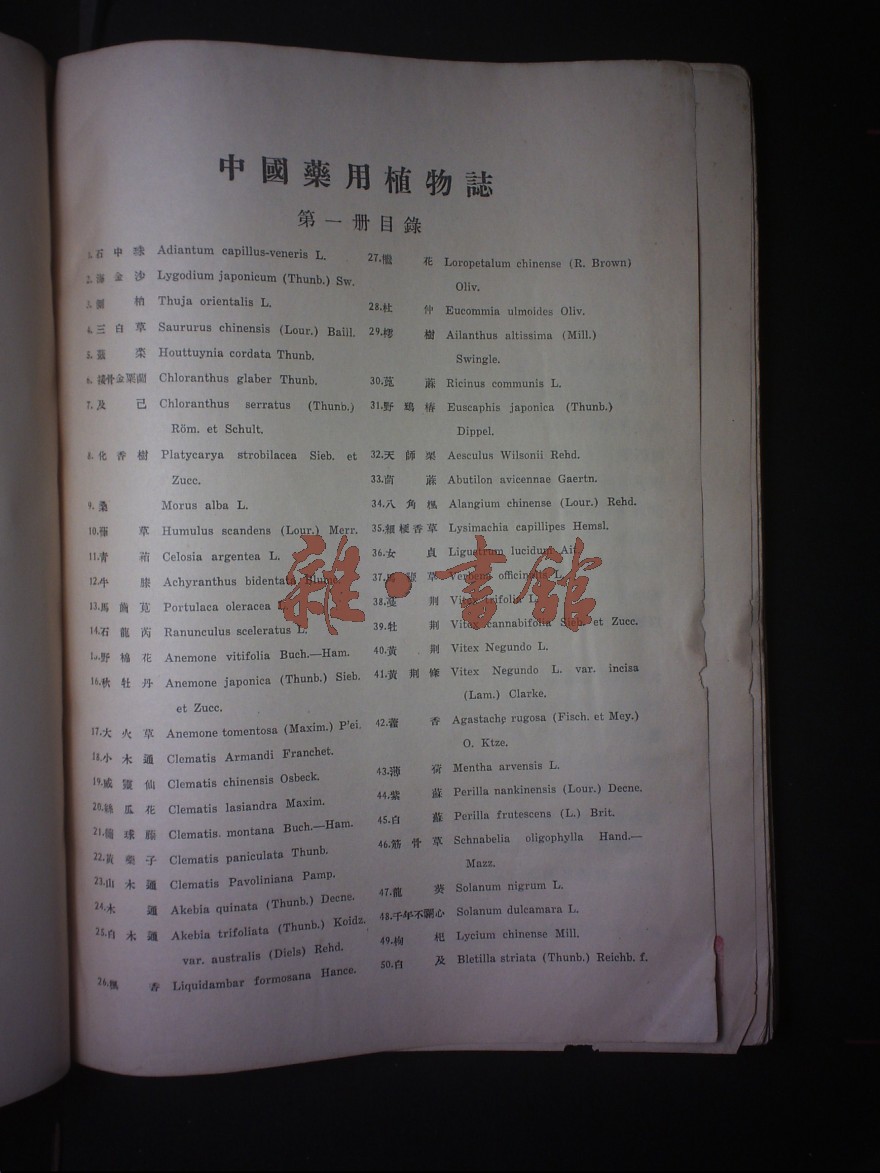 中國藥用植物誌
第一册目錄
1.石中珠 Adiantum capillus-veneris L.
2.海金沙 Lygodium japonicum (Thunb.) Sw.
3.側柏 Thuja orientalis L.
4.三白草 Saururus chinensis (Lour.) Baill.
5.蕺菜 Houttuynia cordata Thunb.
6.接骨金粟蘭 Chloranthus glaber Thunb.
7.及己 Chloranthus serratus (Thunb.)
Röm. et Schult.
8.化香樹 Platycarya strobilacea Sieb. et
Zucc.
9.桑 Morus alba L.
10.葎草 Humulus scandens (Lour.) Merr.
11.青葙 Celosia argentea L.
12.牛膝 Achyranthus bidentata Blume.
13.馬齒莧 Portulaca oleracea L.
14.石龍芮 Ranunculus sceleratus L.
15.野棉花 Anemone vitifolia Buch.—Ham.
16.秋牡丹 Anemone japonica (Thunb.) Sieb.
et Zucc.
17.大火草 Anemone tomentosa (Maxim.) P'ei.
18.小木通 Clematis Armandi Franchet.
19.威靈仙 Clematis chinensis Osbeck.
20.絲瓜花 Clematis lasiandra Maxim.
21.繡球藤 Clematis. montana Buch.—Ham.
22.黃藥子 Clematis paniculata Thunb.
23.山木通 Clematis Pavoliniana Pamp.
24.木通 Akebia quinata (Thunb.) Decne.
25.白木通 Akebia trifoliata (Thunb.) Koidz.
var. australis (Diels) Rehd.
26.楓香 Liquidambar formosana Hance.
27.檵花 Loropetalum chinense (R. Brown)
Oliv.
28.杜仲 Eucommia ulmoides Oliv.
29.樗樹 Ailanthus altissima (Mill.)
Swingle.
30.蓖麻 Ricinus communis L.
31.野鴉椿 Euscaphis japonica (Thunb.)
Dippel.
32.天師栗 Aesculus Wilsonii Rehd.
33.苘蔴 Abutilon avicennae Gaertn.
34.八角楓 Alangium chinense (Lour.) Rehd.
35.細梗香草 Lysimachia capillipes Hemsl.
36.女貞 Ligustrum lucidum Ait.
37.馬鞭草 Verbena officinalis L.
38.蔓荆 Vitex trifolia L.
39.牡荆 Vitex cannabifolia Sieb. et Zucc.
40.黃荆 Vitex Negundo L.
41.黃荆條 Vitex Negundo L. var. incisa
(Lam.) Clarke.
42.藿香 Agastache rugosa (Fisch. et Mey.)
O. Ktze.
43.薄荷 Mentha arvensis L.
44.紫蘇 Perilla nankinensis (Lour.) Decne.
45.白蘇 Perilla frutescens (L.) Brit.
46.筋骨草 Schnabelia oligophylla Hand.—
Mazz.
47.龍葵 Solanum nigrum L.
48.千年不爛心 Solanum dulcamara L.
49.枸杞 Lycium chinense Mill.
50.白及 Bletilla striata (Thunb.) Reichb. f.
雜·書館